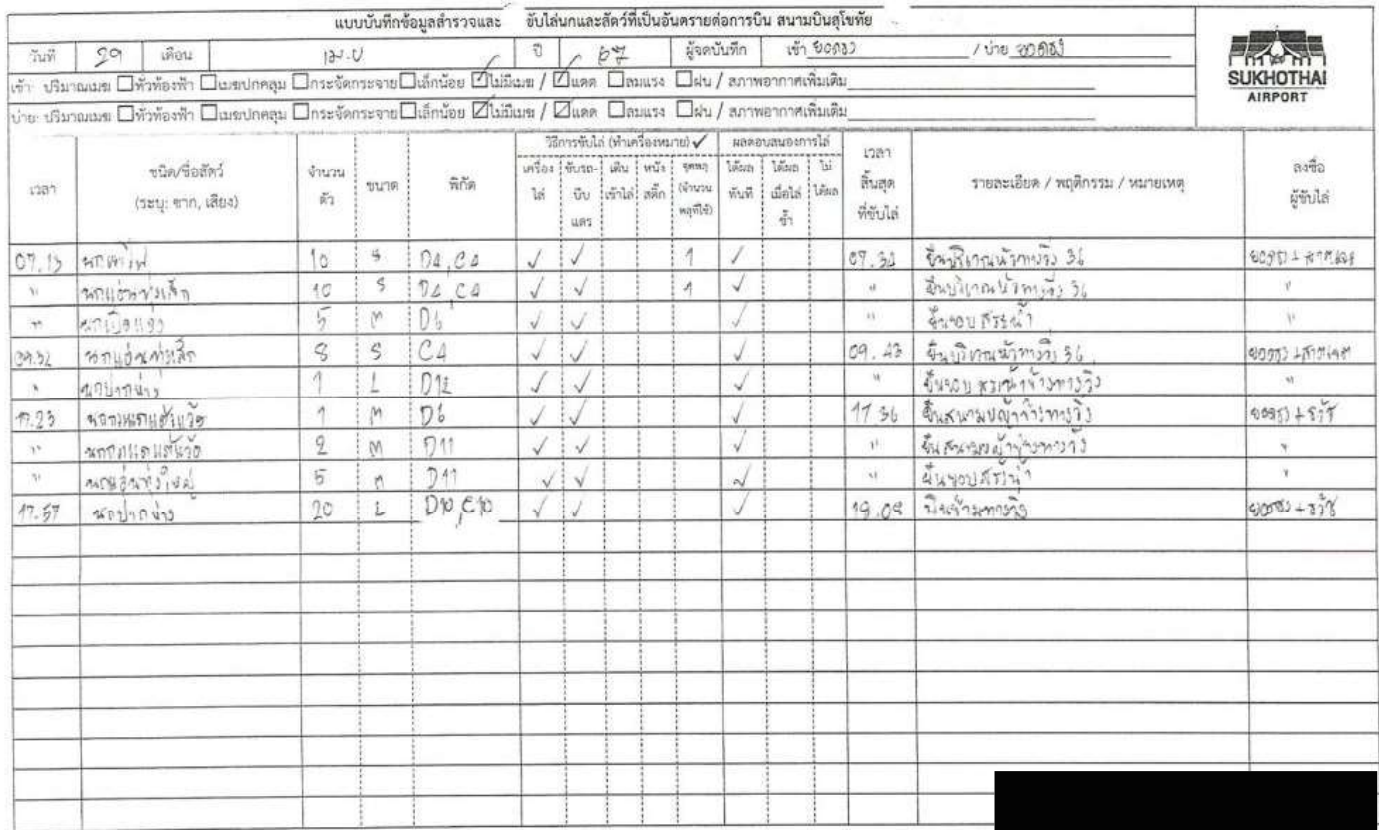 แบบบันทึกข้อมูลสำรวจและ ขับไล่นกและสัตว์ที่เป็นอันตรายต่อการบิน สนามบินสุโขทัย
วันที่ 29 เดือน เม.ย ปี 67 ผู้จดบันทึก เช้า / บ่าย
เช้า: ปริมาณเมฆ ทั่วท้องฟ้า เมฆปกคลุม กระจัดกระจาย เล็กน้อย ไม่มีเมฆ / แดด ลมแรง ฝน / สภาพอากาศเพิ่มเติม
บ่าย: ปริมาณเมฆ ทั่วท้องฟ้า เมฆปกคลุม กระจัดกระจาย เล็กน้อย ไม่มีเมฆ / แดด ลมแรง ฝน / สภาพอากาศเพิ่มเติม
SUKHOTHAI
AIRPORT
เวลา
ชนิด/ชื่อสัตว์
(ระบุ: ซาก, เสียง)
จำนวน
ตัว
ขนาด
พิกัด
วิธีการขับไล่ (ทำเครื่องหมาย) ✓
เครื่อง
ไล่
ขับรถ-
บีบ
แตร
เดิน
เข้าไล่
หนัง
สติ๊ก
จุดพลุ
(จำนวน
พลุที่ใช้)
ผลตอบสนองการไล่
ได้ผล
ทันที
ได้ผล
เมื่อไล่
ซ้ำ
ไม่
ได้ผล
เวลา
สิ้นสุด
ที่ขับไล่
รายละเอียด / พฤติกรรม / หมายเหตุ
ลงชื่อ
ผู้ขับไล่
10 S D4,C4 ✓ ✓ 1 ✓ ยืนบริเวณหัวทางวิ่ง 36
" นกแอ่นทุ่งเล็ก 10 S D4,C4 ✓ ✓ 1 ✓ " ยืนบริเวณหัวทางวิ่ง 36 "
" 5 M D6 ✓ ✓ ✓ " ยืนขอบสระน้ำ "
09.32 นกแอ่นทุ่งเล็ก 8 S C4 ✓ ✓ ✓ 09.43 ยืนบริเวณหัวทางวิ่ง 36
" นกปากห่าง 1 L D12 ✓ ✓ ✓ " ยืนขอบสระน้ำข้างทางวิ่ง "
17.23 นกกระแตแต้แว้ด 1 M D6 ✓ ✓ ✓ 17.36 ยืนสนามหญ้าข้างทางวิ่ง
" นกกระแตแต้แว้ด 2 M D11 ✓ ✓ ✓ " ยืนสนามหญ้าข้างทางวิ่ง "
" นกแอ่นทุ่งใหญ่ 5 M D11 ✓ ✓ ✓ " ยืนขอบสระน้ำ "
17.57 นกปากห่าง 20 L D10,E10 ✓ ✓ ✓ บินข้ามทางวิ่ง